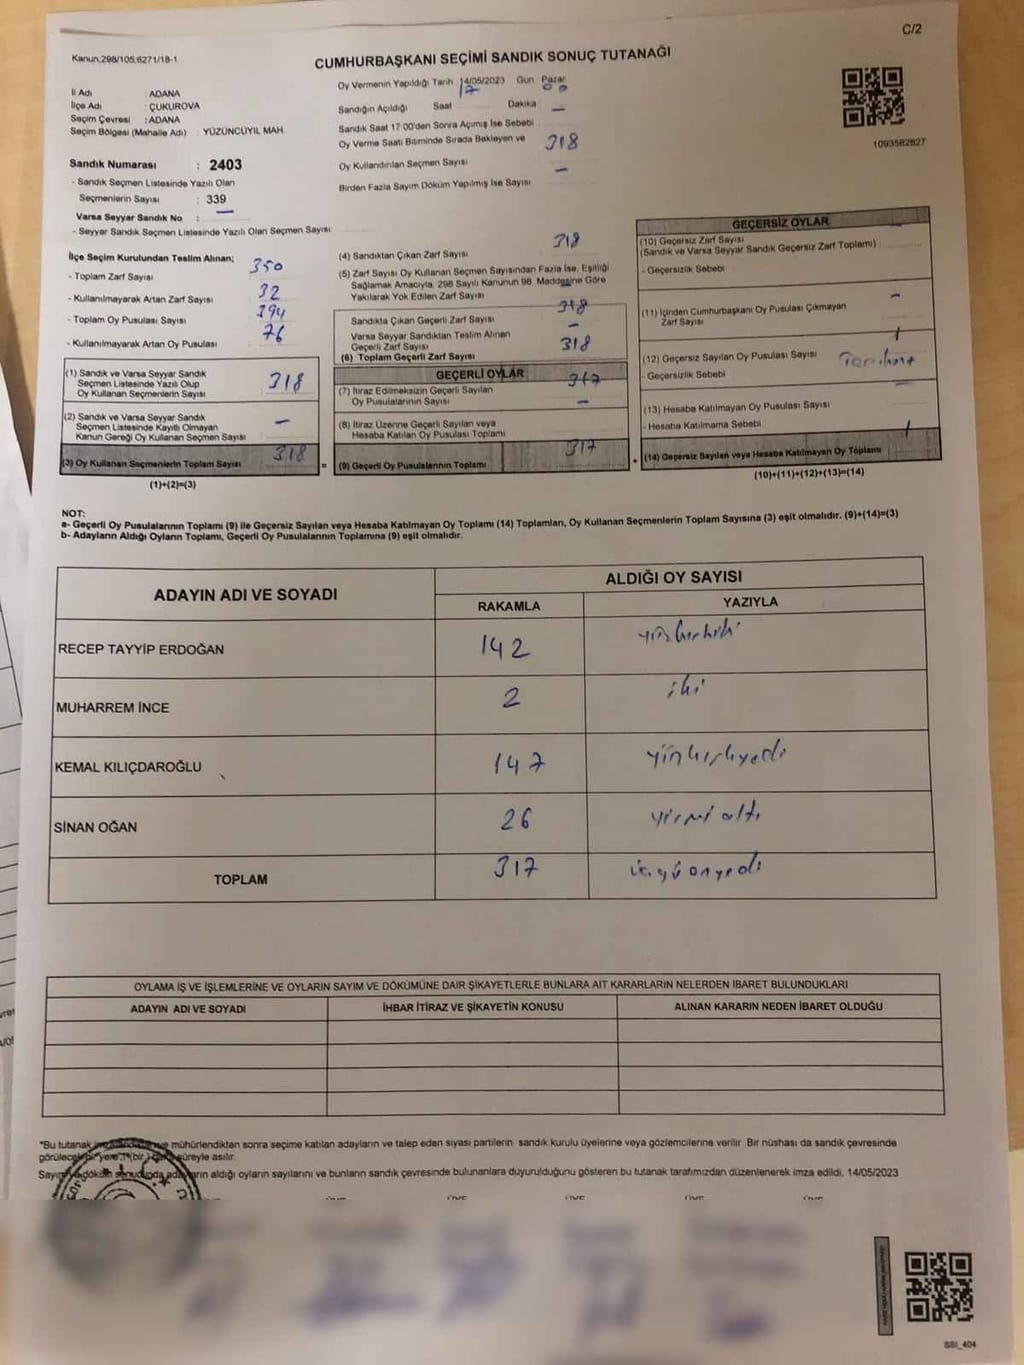 C/2
Kanun:298/105;6271/18-1
CUMHURBAŞKANI SEÇİMİ SANDIK SONUÇ TUTANAĞI
İl Adı : ADANA
İlçe Adı : ÇUKUROVA
Seçim Çevresi : ADANA
Seçim Bölgesi (Mahalle Adı) : YÜZÜNCÜYIL MAH.
Sandık Numarası : 2403
- Sandık Seçmen Listesinde Yazılı Olan
Seçmenlerin Sayısı : 339
Varsa Seyyar Sandık No : —
- Seyyar Sandık Seçmen Listesinde Yazılı Olan Seçmen Sayısı
Oy Vermenin Yapıldığı Tarih 14/05/2023 Gün Pazar
Sandığın Açıldığı Saat 17 Dakika 00
Sandık Saat 17:00'den Sonra Açımış İse Sebebi —
Oy Verme Saati Bitiminde Sırada Bekleyen ve
Oy Kullandırılan Seçmen Sayısı 318
Birden Fazla Sayım Döküm Yapılmış İse Sayısı —
1093582827
İlçe Seçim Kurulundan Teslim Alınan;
- Toplam Zarf Sayısı 350
- Kullanılmayarak Artan Zarf Sayısı 32
- Toplam Oy Pusulası Sayısı 394
- Kullanılmayarak Artan Oy Pusulası 76
(1) Sandık ve Varsa Seyyar Sandık
Seçmen Listesinde Yazılı Olup
Oy Kullanan Seçmenlerin Sayısı 318
(2) Sandık ve Varsa Seyyar Sandık
Seçmen Listesinde Kayıtlı Olmayan
Kanun Gereği Oy Kullanan Seçmen Sayısı —
(3) Oy Kullanan Seçmenlerin Toplam Sayısı 318
(1)+(2)=(3)
(4) Sandıktan Çıkan Zarf Sayısı 318
(5) Zarf Sayısı Oy Kullanan Seçmen Sayısından Fazla İse, Eşitliği
Sağlamak Amacıyla, 298 Sayılı Kanunun 98. Maddesine Göre
Yakılarak Yok Edilen Zarf Sayısı
Sandıkta Çıkan Geçerli Zarf Sayısı 318
Varsa Seyyar Sandıktan Teslim Alınan
Geçerli Zarf Sayısı —
(6) Toplam Geçerli Zarf Sayısı 318
GEÇERLİ OYLAR
(7) İtiraz Edilmeksizin Geçerli Sayılan
Oy Pusulalarının Sayısı 317
(8) İtiraz Üzerine Geçerli Sayılan veya
Hesaba Katılan Oy Pusulası Toplamı —
= (9) Geçerli Oy Pusulalarının Toplamı 317 +
GEÇERSİZ OYLAR
(10) Geçersiz Zarf Sayısı
(Sandık ve Varsa Seyyar Sandık Geçersiz Zarf Toplamı) —
- Geçersizlik Sebebi
(11) İçinden Cumhurbaşkanı Oy Pusulası Çıkmayan
Zarf Sayısı —
(12) Geçersiz Sayılan Oy Pusulası Sayısı 1
- Geçersizlik Sebebi
(13) Hesaba Katılmayan Oy Pusulası Sayısı —
- Hesaba Katılmama Sebebi
(14) Geçersiz Sayılan veya Hesaba Katılmayan Oy Toplamı 1
(10)+(11)+(12)+(13)=(14)
NOT:
a- Geçerli Oy Pusulalarının Toplamı (9) ile Geçersiz Sayılan veya Hesaba Katılmayan Oy Toplamı (14) Toplamları, Oy Kullanan Seçmenlerin Toplam Sayısına (3) eşit olmalıdır. (9)+(14)=(3)
b- Adayların Aldığı Oyların Toplamı, Geçerli Oy Pusulalarının Toplamına (9) eşit olmalıdır.
ADAYIN ADI VE SOYADI
ALDIĞI OY SAYISI
RAKAMLA YAZIYLA
RECEP TAYYİP ERDOĞAN 142 yüzkırkiki
MUHARREM İNCE 2 iki
KEMAL KILIÇDAROĞLU 147 yüzkırkyedi
SİNAN OĞAN 26 yirmi altı
TOPLAM 317 üçyüz onyedi
OYLAMA İŞ VE İŞLEMLERİNE VE OYLARIN SAYIM VE DÖKÜMÜNE DAİR ŞİKAYETLERLE BUNLARA AİT KARARLARIN NELERDEN İBARET BULUNDUKLARI
ADAYIN ADI VE SOYADI İHBAR İTİRAZ VE ŞİKAYETİN KONUSU ALINAN KARARIN NEDEN İBARET OLDUĞU
"Bu tutanak mühürlendikten sonra seçime katılan adayların ve talep eden siyasi partilerin sandık kurulu üyelerine veya gözlemcilerine verilir. Bir nüshası da sandık çevresinde
görülecek bir yere 1 (bir) süreyle asılır.
aldığı oyların sayılarını ve bunların sandık çevresinde bulunanlara duyurulduğunu gösteren bu tutanak tarafımızdan düzenlenerek imza edildi. 14/05/2023
SSI_404